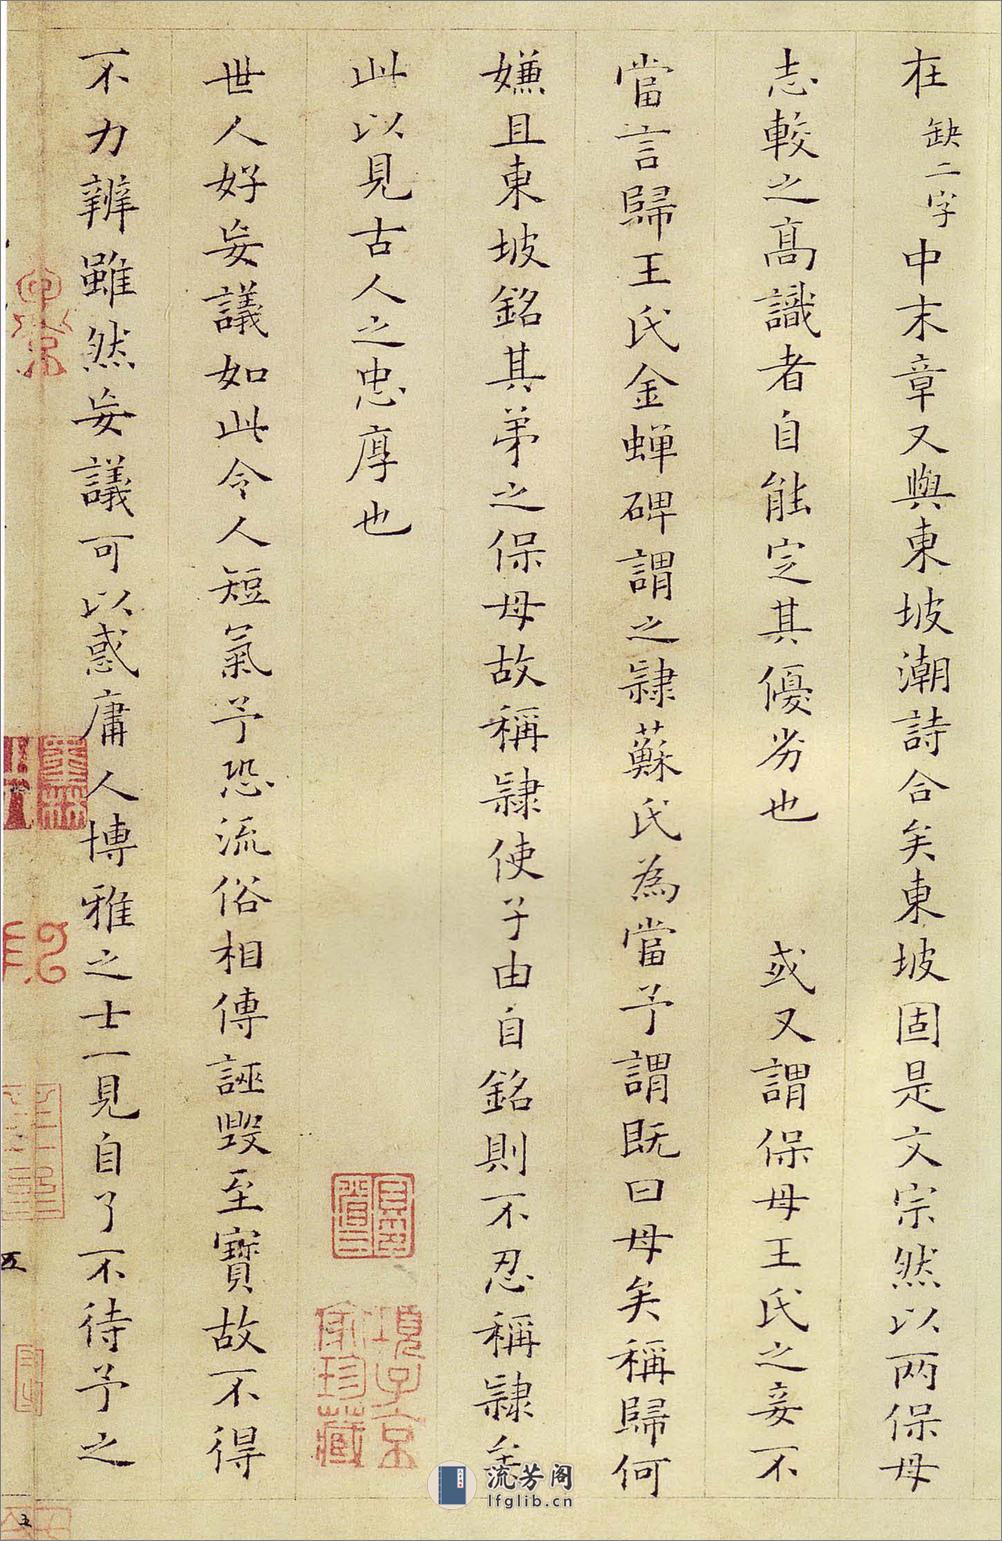 在缺二字中末章又與東坡潮詩合矣東坡固是文宗然以两保母
志較之髙識者自能定其優劣也　或又謂保母王氏之妾不
當言歸王氏金蟬碑謂之隷蘇氏為當予謂既曰母矣稱歸何
嫌且東坡銘其弟之保母故稱隷使子由自銘則不忍稱隷矣
此以見古人之忠厚也
世人好妄議如此令人短氣予恐流俗相傳誣毀至寶故不得
不力辨雖然妄議可以惑庸人博雅之士一見自了不待予之
項子京家珍藏
五
五
流芳阁
lfglib.cn